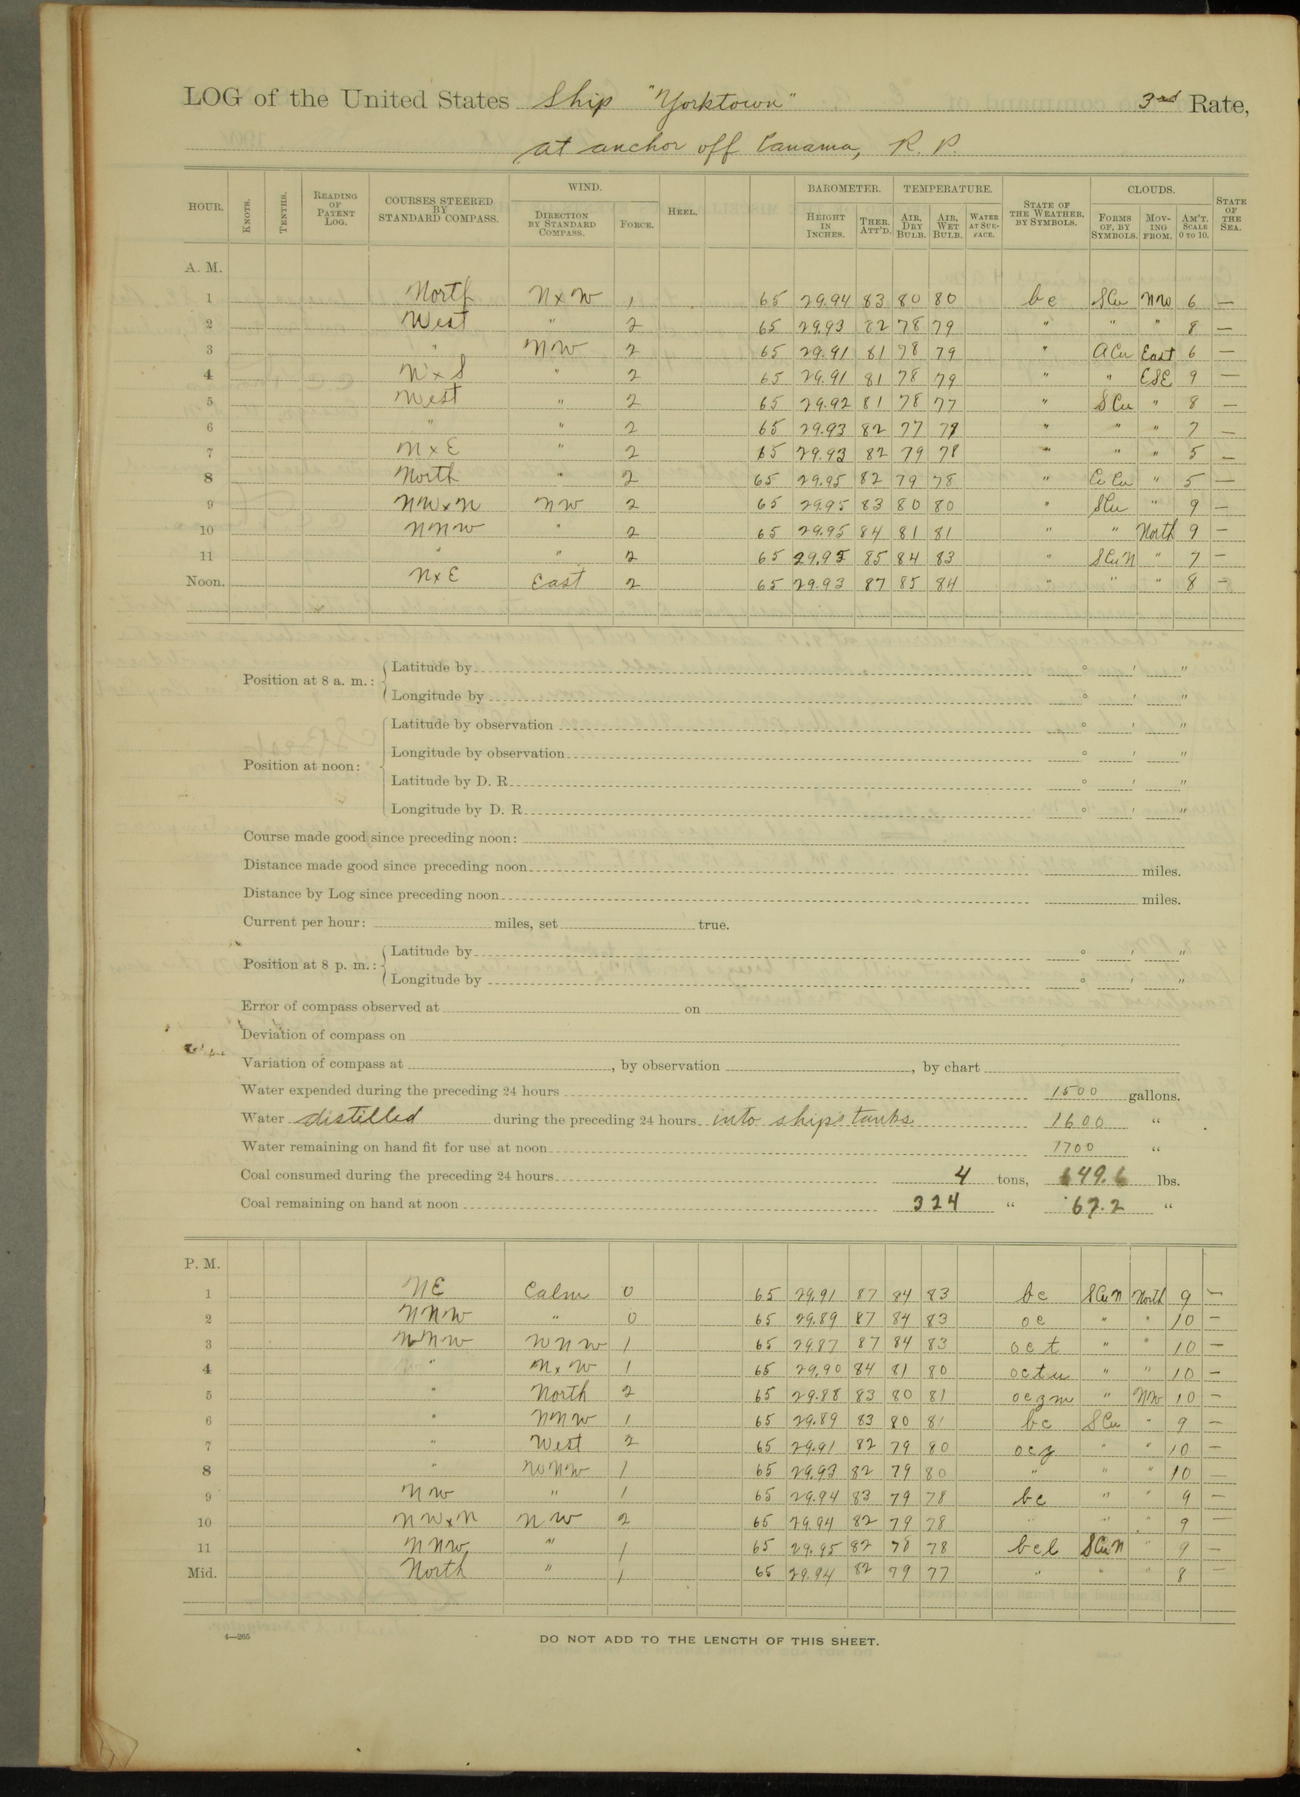 LOG of the United States Ship "Yorktown" 3rd Rate,
at anchor off Panama, R. P.
HOUR. KNOTS. TENTHS. READING OF PATENT LOG. COURSES STEERED BY STANDARD COMPASS. WIND. DIRECTION BY STANDARD COMPASS. FORCE. HEEL. BAROMETER. HEIGHT IN INCHES. THER. ATT'D. TEMPERATURE. AIR, DRY BULB. AIR, WET BULB. WATER AT SURFACE. STATE OF THE WEATHER, BY SYMBOLS. CLOUDS. FORMS OF, BY SYMBOLS. MOVING FROM. AM'T. SCALE 0 TO 10. STATE OF THE SEA.
A. M.
1 North NxW 1 65 29.94 83 80 80 bc SCu NW 6 —
2 West " 2 65 29.93 82 78 79 " " " 8 —
3 " NW 2 65 29.91 81 78 79 " ACu East 6 —
4 NxS " 2 65 29.91 81 78 79 " " ESE 9 —
5 West " 2 65 29.92 81 78 77 " SCu " 8 —
6 " " 2 65 29.93 82 77 " " " 7 —
7 NxE " 2 65 29.93 82 79 78 " " " 5 —
8 North " 2 65 29.95 82 79 78 " CiCu " 5 —
9 NWxN NW 2 65 29.95 83 80 80 " SCu " 9 —
10 NNW " 2 65 29.95 84 81 81 " " North 9 —
11 " " 2 65 29.95 85 84 83 " SCuN " 7 —
Noon. NxE East 2 65 29.93 87 85 84 " " " 8 —
Position at 8 a. m.: Latitude by ° ' "
Longitude by ° ' "
Position at noon: Latitude by observation ° ' "
Longitude by observation ° ' "
Latitude by D. R. ° ' "
Longitude by D. R. ° ' "
Course made good since preceding noon:
Distance made good since preceding noon miles.
Distance by Log since preceding noon miles.
Current per hour: miles, set true.
Position at 8 p. m.: Latitude by ° ' "
Longitude by ° ' "
Error of compass observed at on
Deviation of compass on
Variation of compass at , by observation , by chart
Water expended during the preceding 24 hours 1500 gallons.
Water distilled during the preceding 24 hours into ship's tanks 1600 "
Water remaining on hand fit for use at noon 1700 "
Coal consumed during the preceding 24 hours 4 tons, 649.6 lbs.
Coal remaining on hand at noon 324 " 67.2 "
P. M.
1 NE Calm 0 65 29.91 87 84 83 bc SCuN North 9 —
2 NNW " 0 65 29.89 87 84 83 oc " " 10 —
3 NNW WNW 1 65 29.87 87 84 83 oct " " 10 —
4 " NxW 1 65 29.90 84 81 80 octu " " 10 —
5 " North 2 65 29.88 83 80 81 ocgm " NW 10 —
6 " NNW 1 65 29.89 83 80 81 bc SCu " 9 —
7 " West 2 65 29.91 82 79 80 ocg " " 10 —
8 " WNW 1 65 29.93 82 79 80 " " " 10 —
9 NW " 1 65 29.94 83 79 78 bc " " 9 —
10 NWxN NW 2 65 29.94 82 79 78 " " " 9 —
11 NNW " 1 65 29.95 82 78 78 bcl SCuN " 9 —
Mid. North " 1 65 29.94 82 79 77 " " " 8 —
4—265
DO NOT ADD TO THE LENGTH OF THIS SHEET.